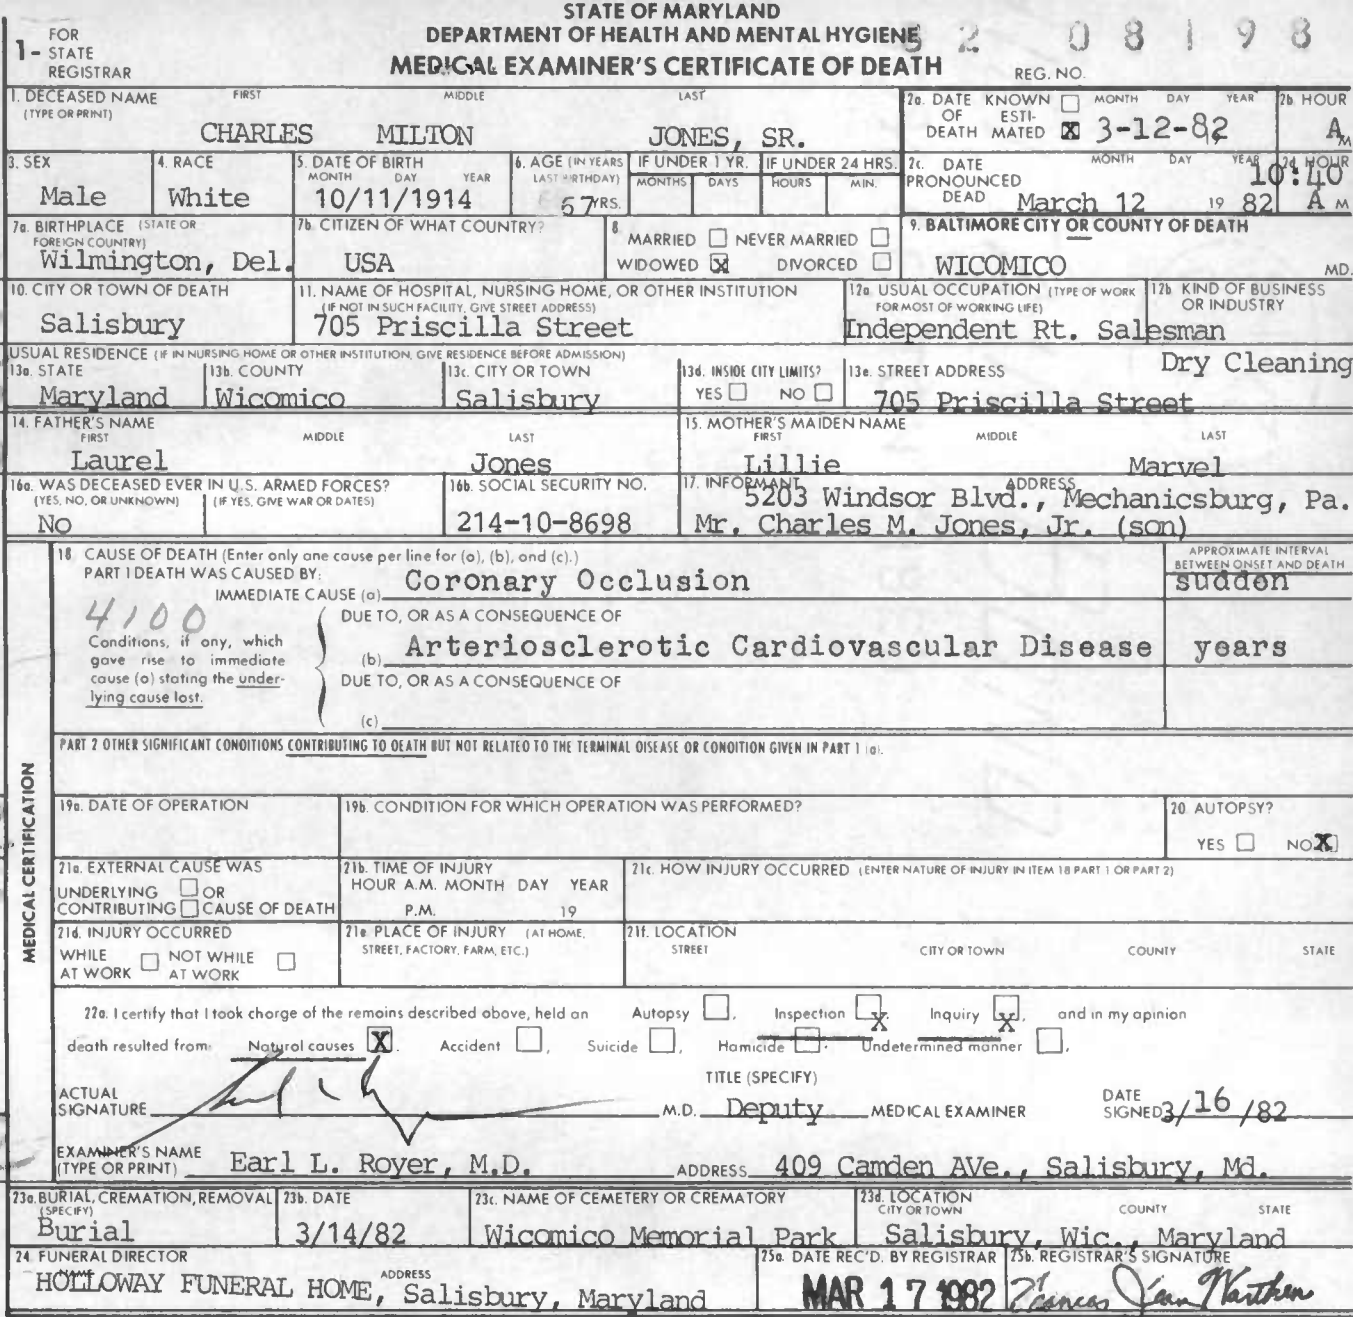 STATE OF MARYLAND
DEPARTMENT OF HEALTH AND MENTAL HYGIENE
MEDICAL EXAMINER'S CERTIFICATE OF DEATH
1- FOR STATE REGISTRAR
82 08198
REG. NO.
1. DECEASED NAME (TYPE OR PRINT) FIRST MIDDLE LAST
CHARLES MILTON JONES, SR.
2a. DATE OF DEATH KNOWN ☐ ESTIMATED ☒ MONTH DAY YEAR
3-12-82
2b. HOUR
A M
3. SEX
Male
4. RACE
White
5. DATE OF BIRTH MONTH DAY YEAR
10/11/1914
6. AGE (IN YEARS LAST BIRTHDAY)
67 YRS.
IF UNDER 1 YR. MONTHS DAYS
IF UNDER 24 HRS. HOURS MIN.
2c. DATE PRONOUNCED DEAD MONTH DAY YEAR
March 12 19 82
2d. HOUR
10:40 A M
7a. BIRTHPLACE (STATE OR FOREIGN COUNTRY)
Wilmington, Del.
7b. CITIZEN OF WHAT COUNTRY?
USA
8. MARRIED ☐ NEVER MARRIED ☐
WIDOWED ☒ DIVORCED ☐
9. BALTIMORE CITY OR COUNTY OF DEATH
WICOMICO MD.
10. CITY OR TOWN OF DEATH
Salisbury
11. NAME OF HOSPITAL, NURSING HOME, OR OTHER INSTITUTION
(IF NOT IN SUCH FACILITY, GIVE STREET ADDRESS)
705 Priscilla Street
12a. USUAL OCCUPATION (TYPE OF WORK FOR MOST OF WORKING LIFE)
Independent Rt. Salesman
12b. KIND OF BUSINESS OR INDUSTRY
Dry Cleaning
USUAL RESIDENCE (IF IN NURSING HOME OR OTHER INSTITUTION, GIVE RESIDENCE BEFORE ADMISSION)
13a. STATE
Maryland
13b. COUNTY
Wicomico
13c. CITY OR TOWN
Salisbury
13d. INSIDE CITY LIMITS?
YES ☐ NO ☐
13e. STREET ADDRESS
705 Priscilla Street
14. FATHER'S NAME FIRST MIDDLE LAST
Laurel Jones
15. MOTHER'S MAIDEN NAME FIRST MIDDLE LAST
Lillie Marvel
16a. WAS DECEASED EVER IN U.S. ARMED FORCES?
(YES, NO, OR UNKNOWN) (IF YES, GIVE WAR OR DATES)
No
16b. SOCIAL SECURITY NO.
214-10-8698
17. INFORMANT ADDRESS
5203 Windsor Blvd., Mechanicsburg, Pa.
Mr. Charles M. Jones, Jr. (son)
MEDICAL CERTIFICATION
18 CAUSE OF DEATH (Enter only one cause per line for (a), (b), and (c).)
PART I DEATH WAS CAUSED BY:
APPROXIMATE INTERVAL BETWEEN ONSET AND DEATH
IMMEDIATE CAUSE (a) Coronary Occlusion sudden
4100
DUE TO, OR AS A CONSEQUENCE OF
Conditions, if any, which gave rise to immediate cause (a) stating the underlying cause last.
(b) Arteriosclerotic Cardiovascular Disease years
DUE TO, OR AS A CONSEQUENCE OF
(c)
PART 2 OTHER SIGNIFICANT CONDITIONS CONTRIBUTING TO DEATH BUT NOT RELATED TO THE TERMINAL DISEASE OR CONDITION GIVEN IN PART 1 (a).
19a. DATE OF OPERATION
19b. CONDITION FOR WHICH OPERATION WAS PERFORMED?
20. AUTOPSY?
YES ☐ NO ☒
21a. EXTERNAL CAUSE WAS
UNDERLYING ☐ OR
CONTRIBUTING ☐ CAUSE OF DEATH
21b. TIME OF INJURY
HOUR A.M. MONTH DAY YEAR
P.M. 19
21c. HOW INJURY OCCURRED (ENTER NATURE OF INJURY IN ITEM 18 PART 1 OR PART 2)
21d. INJURY OCCURRED
WHILE AT WORK ☐ NOT WHILE AT WORK ☐
21e. PLACE OF INJURY (AT HOME, STREET, FACTORY, FARM, ETC.)
21f. LOCATION
STREET CITY OR TOWN COUNTY STATE
22a. I certify that I took charge of the remains described above, held an Autopsy ☐, Inspection ☒, Inquiry ☒, and in my opinion
death resulted from: Natural causes ☒. Accident ☐, Suicide ☐, Homicide ☐. Undetermined manner ☐,
ACTUAL SIGNATURE M.D.
TITLE (SPECIFY)
Deputy MEDICAL EXAMINER
DATE SIGNED 3/16/82
EXAMINER'S NAME (TYPE OR PRINT) Earl L. Royer, M.D.
ADDRESS 409 Camden AVe., Salisbury, Md.
23a. BURIAL, CREMATION, REMOVAL (SPECIFY)
Burial
23b. DATE
3/14/82
23c. NAME OF CEMETERY OR CREMATORY
Wicomico Memorial Park
23d. LOCATION CITY OR TOWN COUNTY STATE
Salisbury, Wic., Maryland
24. FUNERAL DIRECTOR ADDRESS
HOLLOWAY FUNERAL HOME, Salisbury, Maryland
25a. DATE REC'D. BY REGISTRAR
MAR 17 1982
25b. REGISTRAR'S SIGNATURE
Frances Jean Warthen